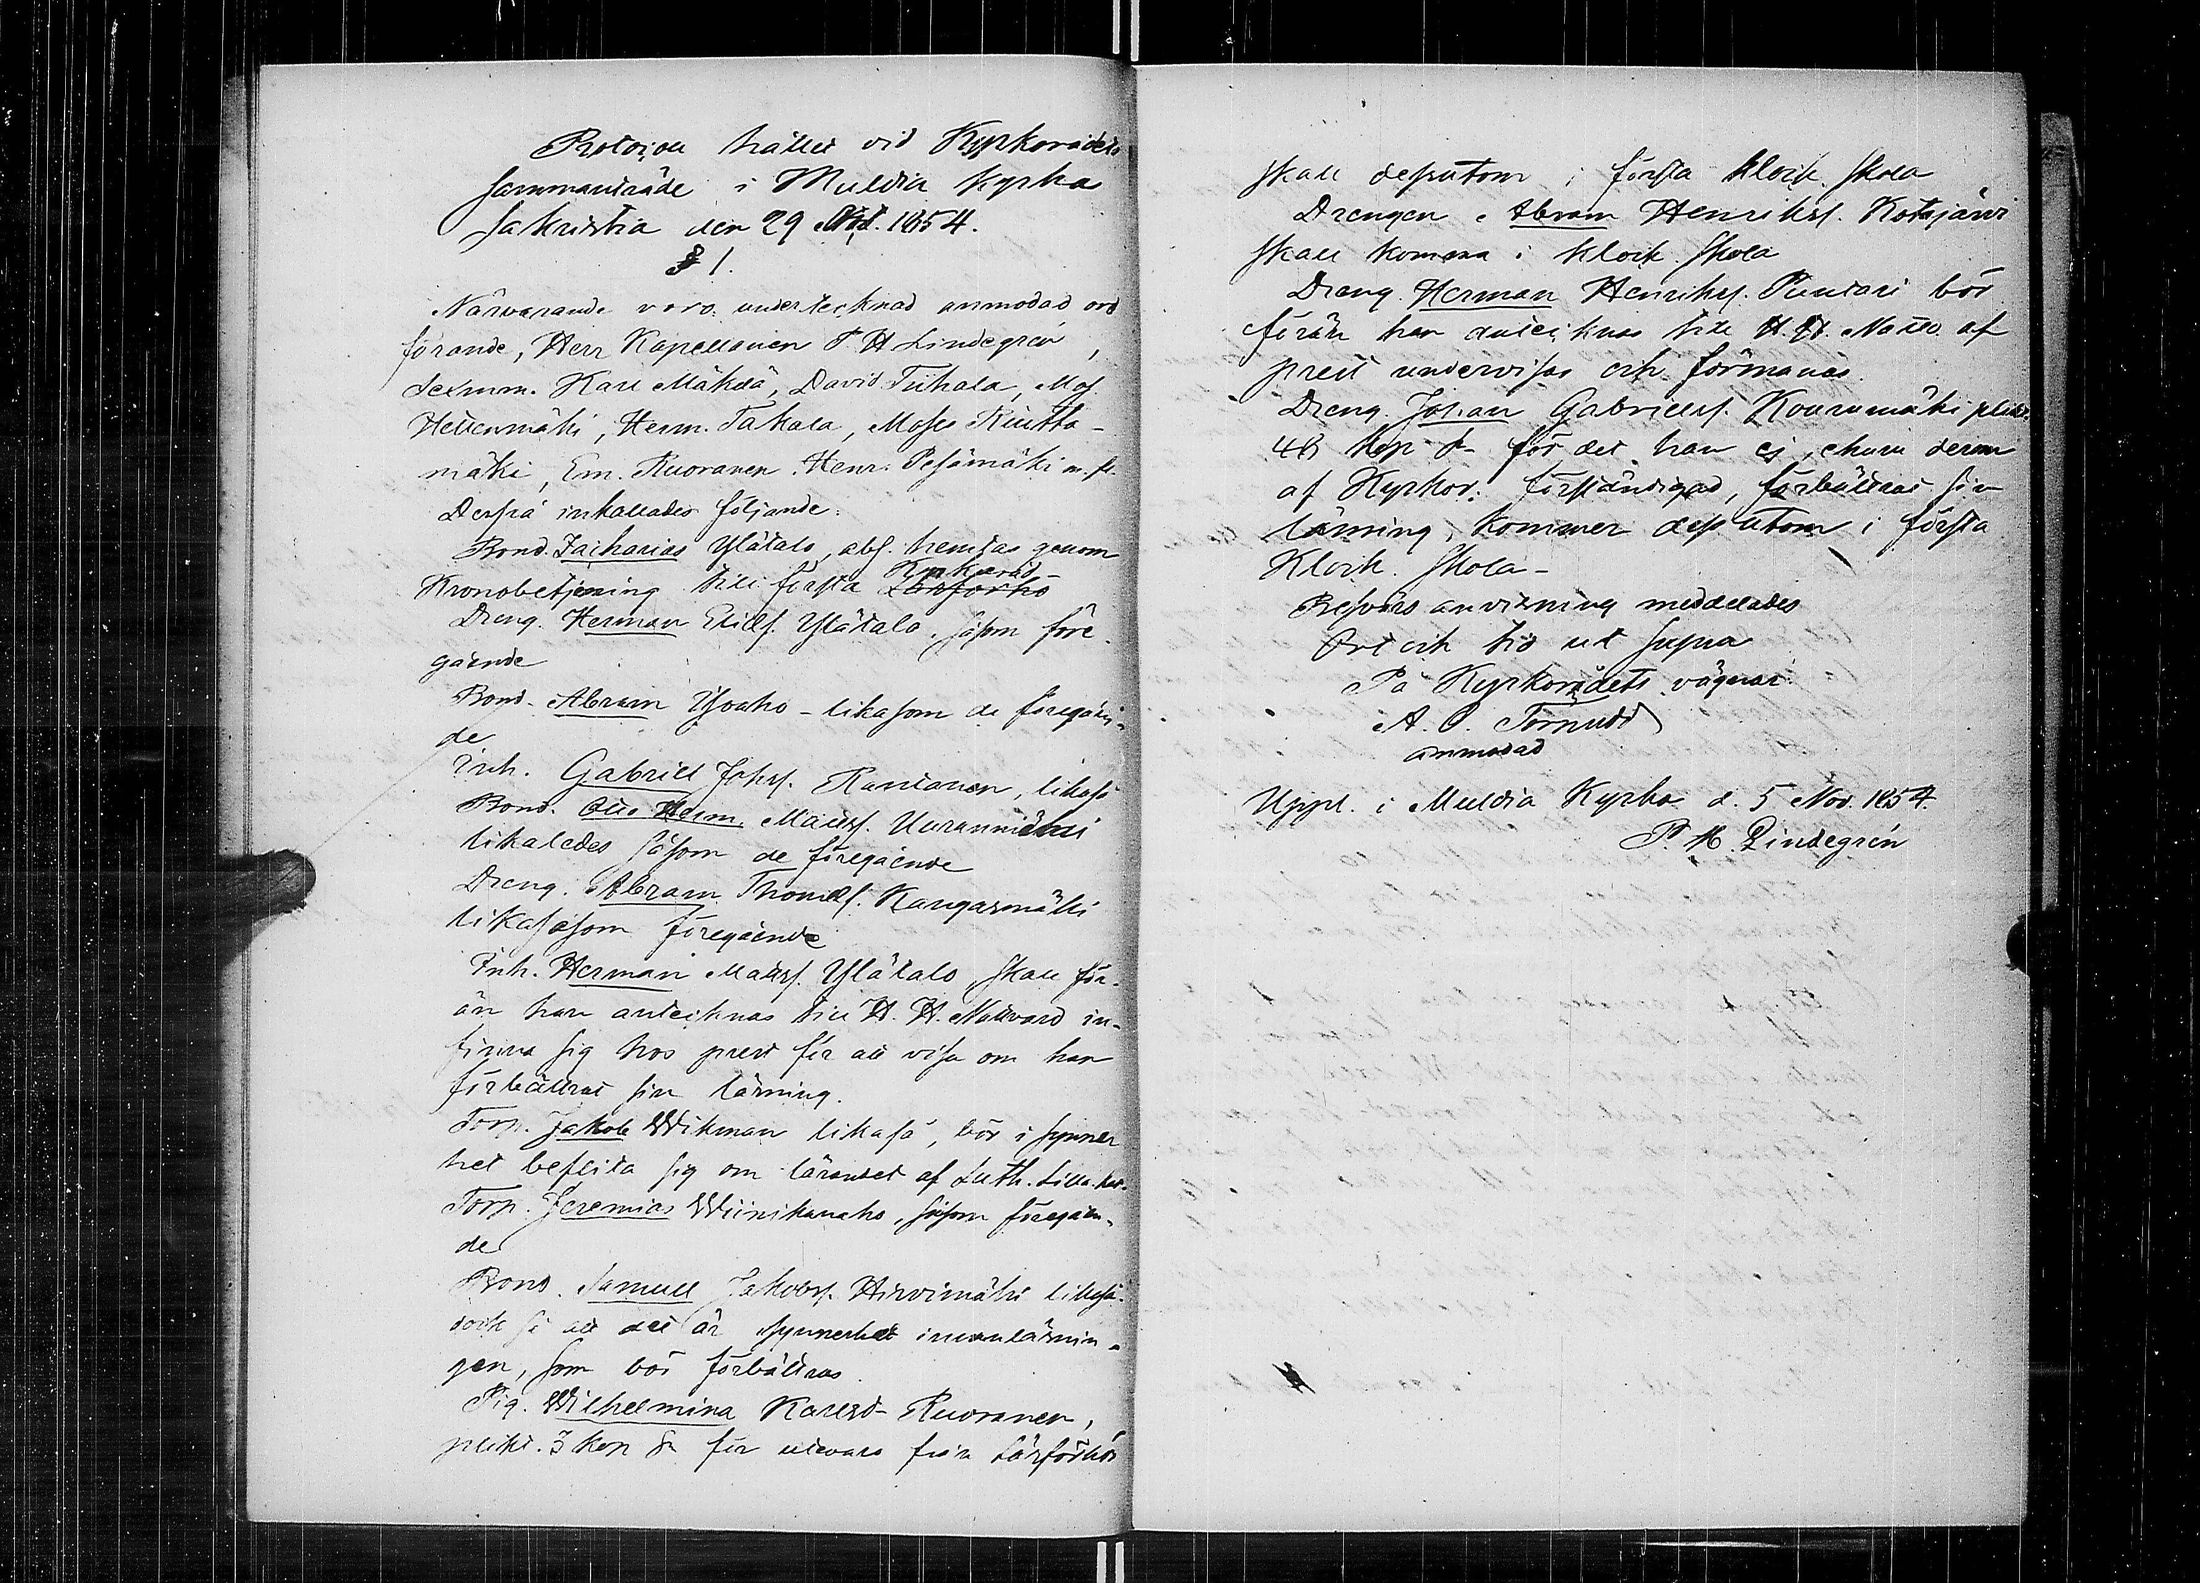 Protocoll hållit vid Kyrkorådets
sammanträde i Muldia Kyrkas
sakristia den 29 1854.
§ 1.
Närvarande voro undertecknad anmodad ord
förande, Herr Kapellanen P H Lindegrén,
Sexmm. Karl Mäkelä, David Tuhala, Mos.
Heticenmäki, Herm. Takala, Moses Riutta-
mäki, Em. Ruoranen, Henr. Pesämäki m. fl.
Derpå inkallades följande:
Bond. Zacharias Ylätalo, abs. hemtas genom
Kyrkoråd
Kronobetjening till första Läsförhö
Dreng. Herman Eliæs. Ylätalo, såsom före-
gående
Bond. Abram Ysoaho - likasom de föregåen-
de
Inh. Gabriel Johss. Rantanen, likaså
Bond. Otto Herm. Mattss. Uuranmäki
likaledes såsom de föregående
Dreng. Abram Thomæs. Kangasmäki
likasåsom föregående
Inh. Herman Mattss. Ylätalo, skall för-
än han antecknas till H. H. Nattvard in-
finna sig hos prest för att visa om han
förbättrat sin läsning.
Torp. Jakob Wikman likaså, bör i synner
het beflita sig om lärandet af Luth. Lilla. kat.
Torp. Jeremias Wiinikanaho, såsom föregåen-
de
Bond. Samuel Jakobss. Hirvimäki likaså.
dock så att det är synnerhet innanläsnin-
gen, som bör förbättras.
Pig. Wilhelmina Karlsd. Ruoranen,
plikt. 3 kop Sr för utevaro från Läsförhör
skall dessutom i första klock. skola
Drengen Abram Henrikss. Kotajärvi
skall komma i klock. skola
Dreng. Herman Henrikss. Puntari bör
förän han antecknas till H. H. Nattv. af
prest undervisas och förmanas.
Dreng. Johan Gabrielss. Kourumäki plikt.
48 kop Sr för det han ej, ehuru derom
af Kyrkor. förständigad, förbättrat sin
läsning, kommer dessutom i första
Klock. Skola -
Besvärs anvisning meddelades
Ort och tid ut supra
På Kyrkorådets vägnar:
A. P. Törnudd
anmodad
Uppl. i Muldia Kyrka d. 5 Nov. 1854.
P. H. Lindegrén